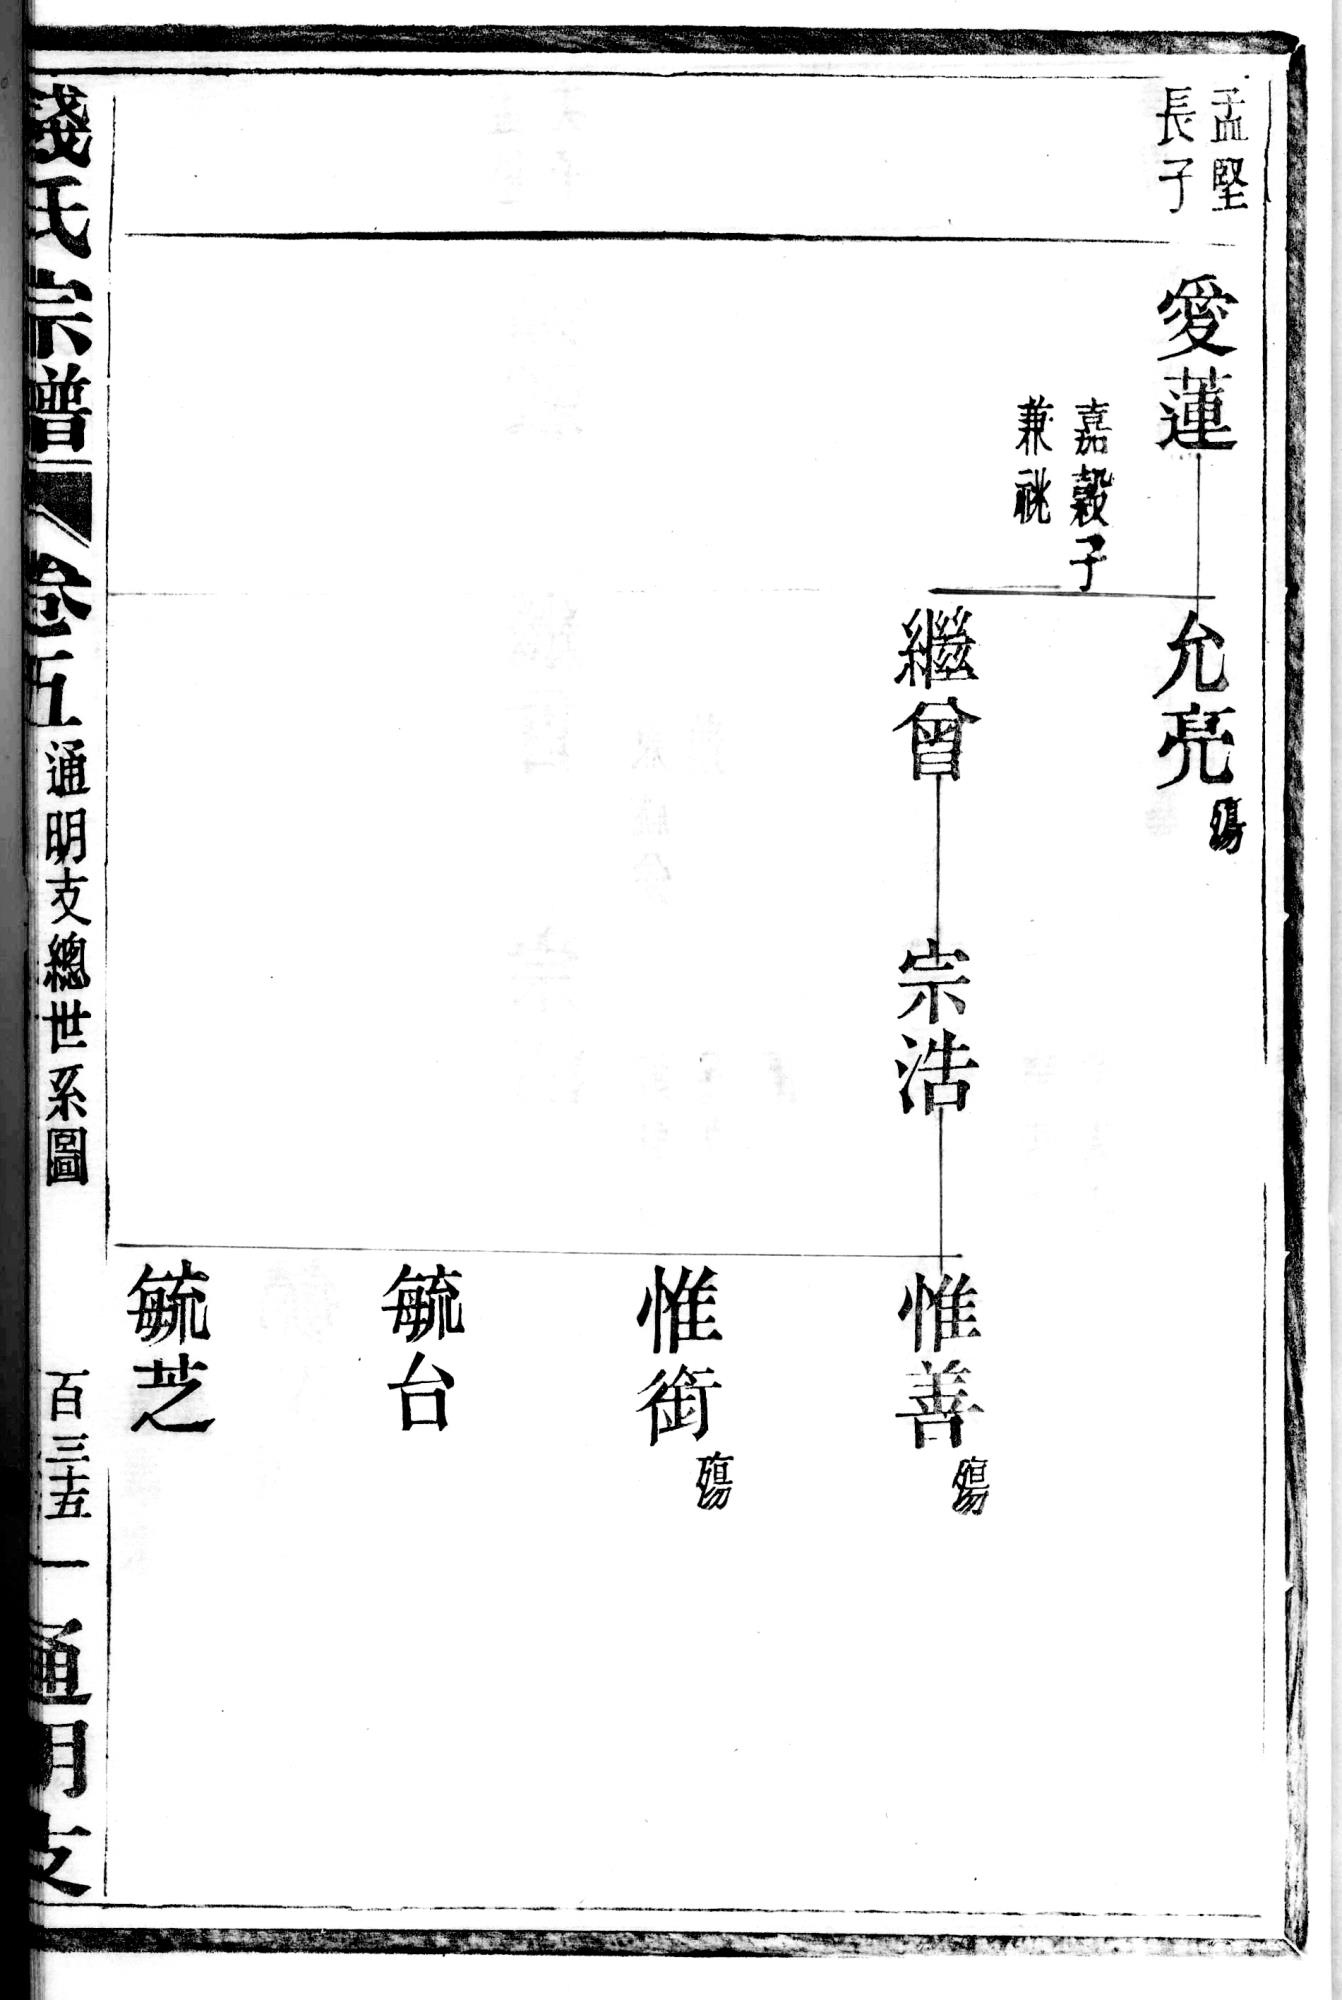 孟堅
長子
愛蓮
允亮
殤
嘉穀子
兼祧
繼曾
宗浩
惟善
殤
惟銜
殤
毓台
毓芝
錢氏宗譜
卷五
通明支總世系圖
百三十五
一
通明支